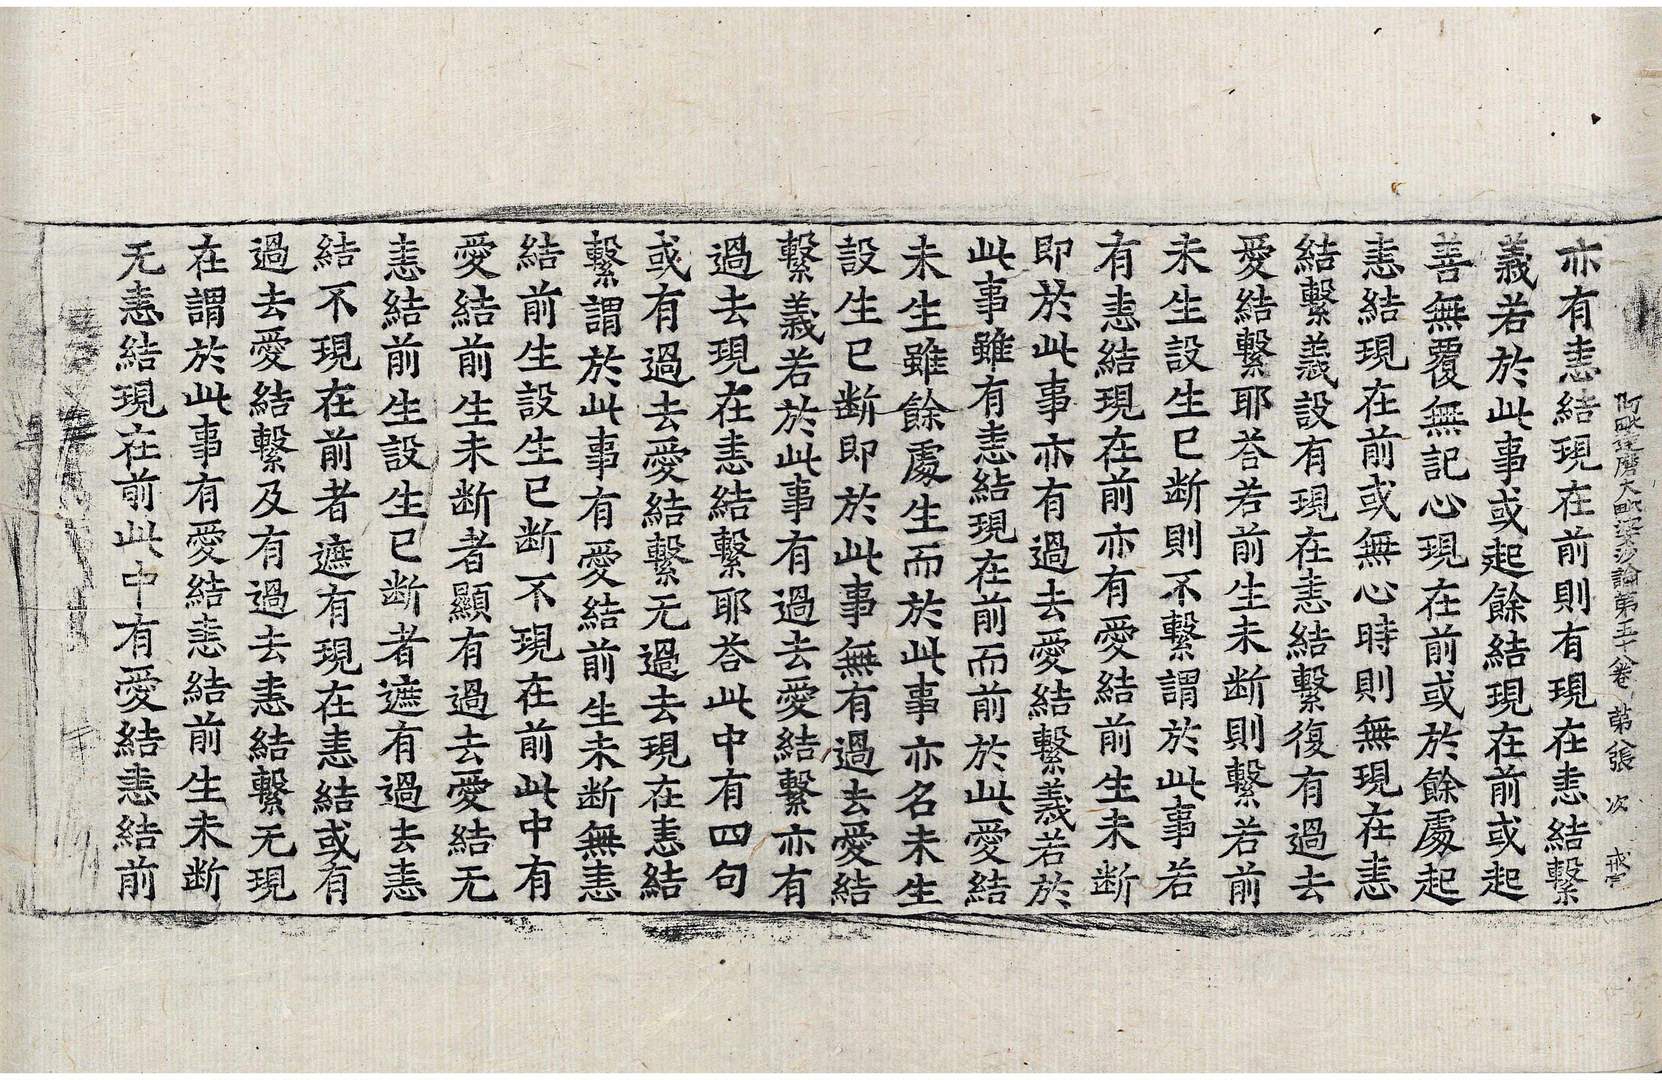 阿毗達磨大毗婆沙論第五十八卷 第八張 次
亦有恚結現在前則有現在恚結繫
義若於此事或起餘結現在前或起
善無覆無記心現在前或於餘處起
恚結現在前或無心時則無現在恚
結繫義設有現在恚結繫復有過去
愛結繫耶荅若前生未断則繫若前
未生設生已断則不繫謂於此事若
有恚結現在前亦有愛結前生未断
即於此事亦有過去愛結繫義若於
此事雖有恚結現在前而前於此愛結
未生雖餘處生而於此事亦名未生
設生已断即於此事無有過去愛結
繫義若於此事有過去愛結繫亦有
過去現在恚結繫耶荅此中有四句
或有過去愛結繫无過去現在恚結
繫謂於此事有愛結前生未断無恚
結前生設生已断不現在前此中有
愛結前生未断者顯有過去愛結无
恚結前生設生已断者遮有過去恚
結不現在前者遮有現在恚結或有
過去愛結繫及有過去恚結繫无現
在謂於此事有愛結恚結前生未断
无恚結現在前此中有愛結恚結前